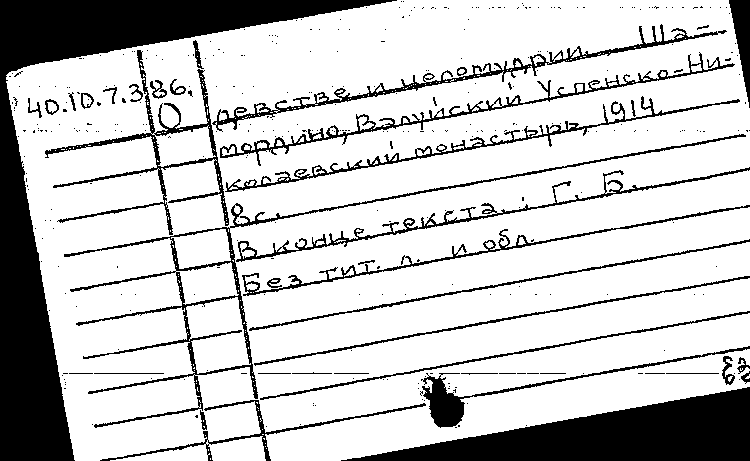 40.10.7.386.
О
девстве и целомудрии. Ша-
мордино, Валуйский Успенско-Ни-
колаевский монастырь, 1914.
8с.
В конце текста.: Г. Б.
Без тит. л. и обл.